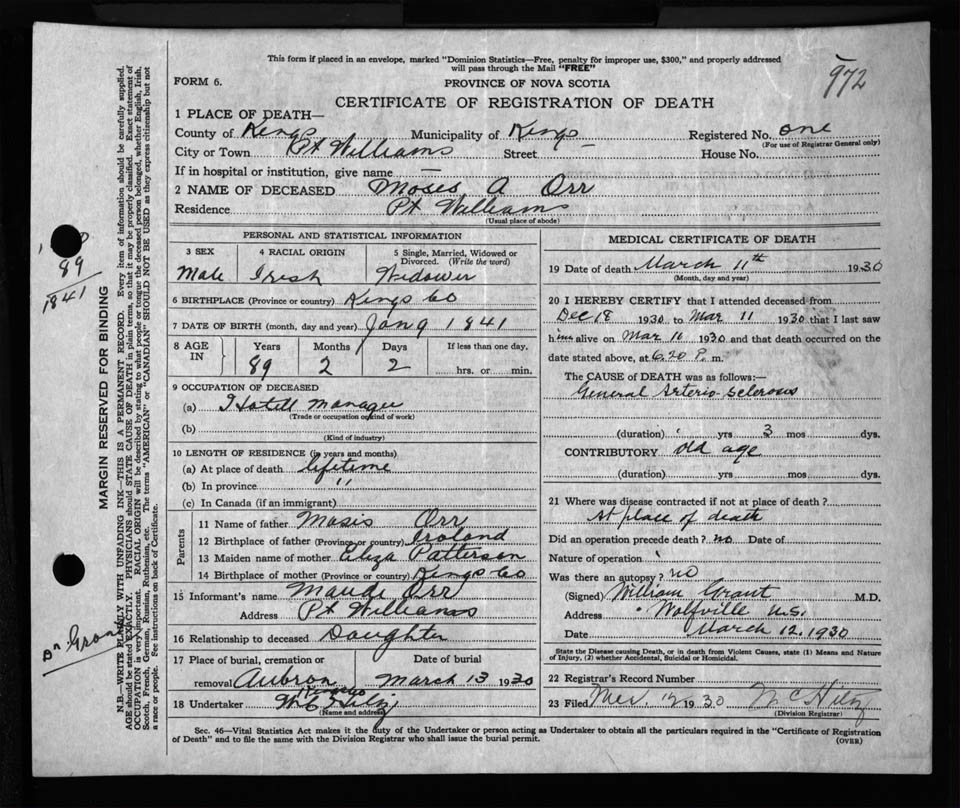 This form if placed in an envelope, marked "Dominion Statistics—Free, penalty for improper use, $300," and properly addressed
will pass through the Mail "FREE"
972
FORM 6.
PROVINCE OF NOVA SCOTIA
CERTIFICATE OF REGISTRATION OF DEATH
1 PLACE OF DEATH—
County of Kings Municipality of Kings Registered No. one
(For use of Registrar General only)
City or Town Pt Williams Street — House No.
If in hospital or institution, give name —
2 NAME OF DECEASED Moses A Orr
Residence Pt Williams
(Usual place of abode)
PERSONAL AND STATISTICAL INFORMATION
3 SEX 4 RACIAL ORIGIN 5 Single, Married, Widowed or Divorced. (Write the word)
Male Irish Widower
6 BIRTHPLACE (Province or country) Kings Co
7 DATE OF BIRTH (month, day and year) Jan 9 1841
8 AGE IN Years Months Days If less than one day.
89 2 2 hrs. or min.
9 OCCUPATION OF DECEASED
(a) Hotell manager
(Trade or occupation or kind of work)
(b)
(Kind of industry)
10 LENGTH OF RESIDENCE (in years and months)
(a) At place of death lifetime
(b) In province "
(c) In Canada (if an immigrant)
Parents
11 Name of father Mosis Orr
12 Birthplace of father (Province or country) Iroland
13 Maiden name of mother Eliza Patterson
14 Birthplace of mother (Province or country) Kings Co
15 Informant's name Maude Orr
Address Pt Williams
16 Relationship to deceased Daughter
17 Place of burial, cremation or removal Date of burial
March 13 1930
18 Undertaker W C Hiltz
(Name and address)
MEDICAL CERTIFICATE OF DEATH
19 Date of death March 11th 1930
(Month, day and year)
20 I HEREBY CERTIFY that I attended deceased from
Dec 18 1930 to Mar 11 1930 that I last saw
him alive on Mar 10 1930 and that death occurred on the
date stated above, at 6.20 P. m.
The CAUSE of DEATH was as follows:—
General Arterio-Sclerosis
(duration) yrs 3 mos dys.
CONTRIBUTORY old age
(duration) yrs. mos. dys.
21 Where was disease contracted if not at place of death?
At place of death
Did an operation precede death? no Date of
Nature of operation
Was there an autopsy? no
(Signed) William Grant M.D.
Address Wolfville N.S.
Date March 12, 1930
State the Disease causing Death, or in death from Violent Causes, state (1) Means and Nature
of Injury, (2) whether Accidental, Suicidal or Homicidal.
22 Registrar's Record Number
23 Filed 12 1930 W C Hiltz
(Division Registrar)
Sec. 46—Vital Statistics Act makes it the duty of the Undertaker or person acting as Undertaker to obtain all the particulars required in the "Certificate of Registration
of Death" and to file the same with the Division Registrar who shall issue the burial permit.
(OVER)
89
1841
MARGIN RESERVED FOR BINDING
N.B.—WRITE PLAINLY WITH UNFADING INK—THIS IS A PERMANENT RECORD. Every item of information should be carefully supplied.
AGE should be stated EXACTLY. PHYSICIANS should STATE CAUSE OF DEATH in plain terms, so that it may be properly classified. Exact statement of
OCCUPATION is very important. RACIAL ORIGIN will be described by stating to what people or tongue the deceased person belonged, whether English, Irish,
Scotch, French, German, Russian, Ruthenian, etc. The terms "AMERICAN" or "CANADIAN" SHOULD NOT BE USED as they express citizenship but not
a race or people. See instructions on back of Certificate.